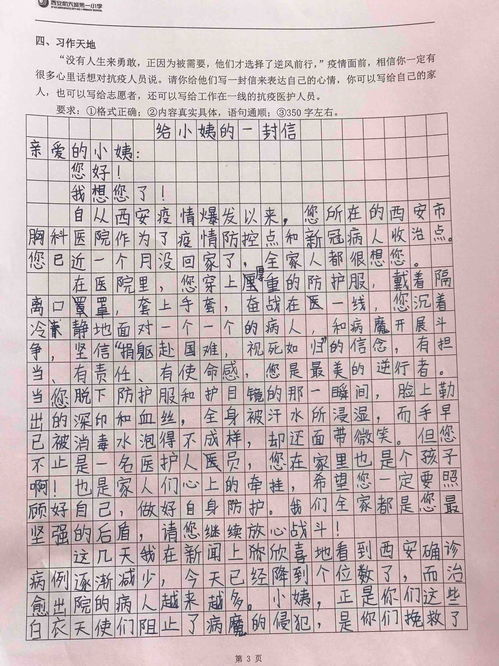 西安航天城第一小学
四、习作天地
“没有人生来勇敢，正因为被需要，他们才选择了逆风前行，”疫情面前，相信你一定有
很多心里话想对抗疫人员说。请你给他们写一封信来表达自己的心情，你可以写给自己的家
人，也可以写给志愿者，还可以写给工作在一线的抗疫医护人员。
要求：①格式正确；②内容真实具体，语句通顺；③350 字左右。
给小姨的一封信
亲爱的小姨：
您好！
我想您了！
自从西安疫情爆发以来，您所在的西安市
胸科医院作为了疫情防控点和新冠病人收治点。
您已近一个月没回家了，全家人都很想您。
在医院里，您穿上厚重的防护服，戴着隔
离口罩，套上手套，奋战在医一线，您沉着
冷静地面对一个一个的病人，和病魔开展斗
争，坚信“捐躯赴国难，视死如归”的信念，有担
当、有责任、有使命感，您是最美的逆行者。
当您脱下防护服和护目镜的那一瞬间，脸上勒
出的深印和血丝，全身被汗水所浸湿，而手早
已被消毒水泡得不成样，却还面带微笑。但您
不止是一名医护人员，您在家里也是个孩子
啊！也是家人们心上的牵挂，希望您一定要照
顾好自己，做好自身防护。我们全家都是您最
坚强的后盾，请您继续放心战斗！
这几天我在新闻上欣喜地看到西安确诊
病例逐渐减少，今天已经降到个位数了，而治
愈出院的病人越来越多。小姨，正是你们这些
白衣天使们阻止了病魔的侵犯，是你们挽救了
第 3 页